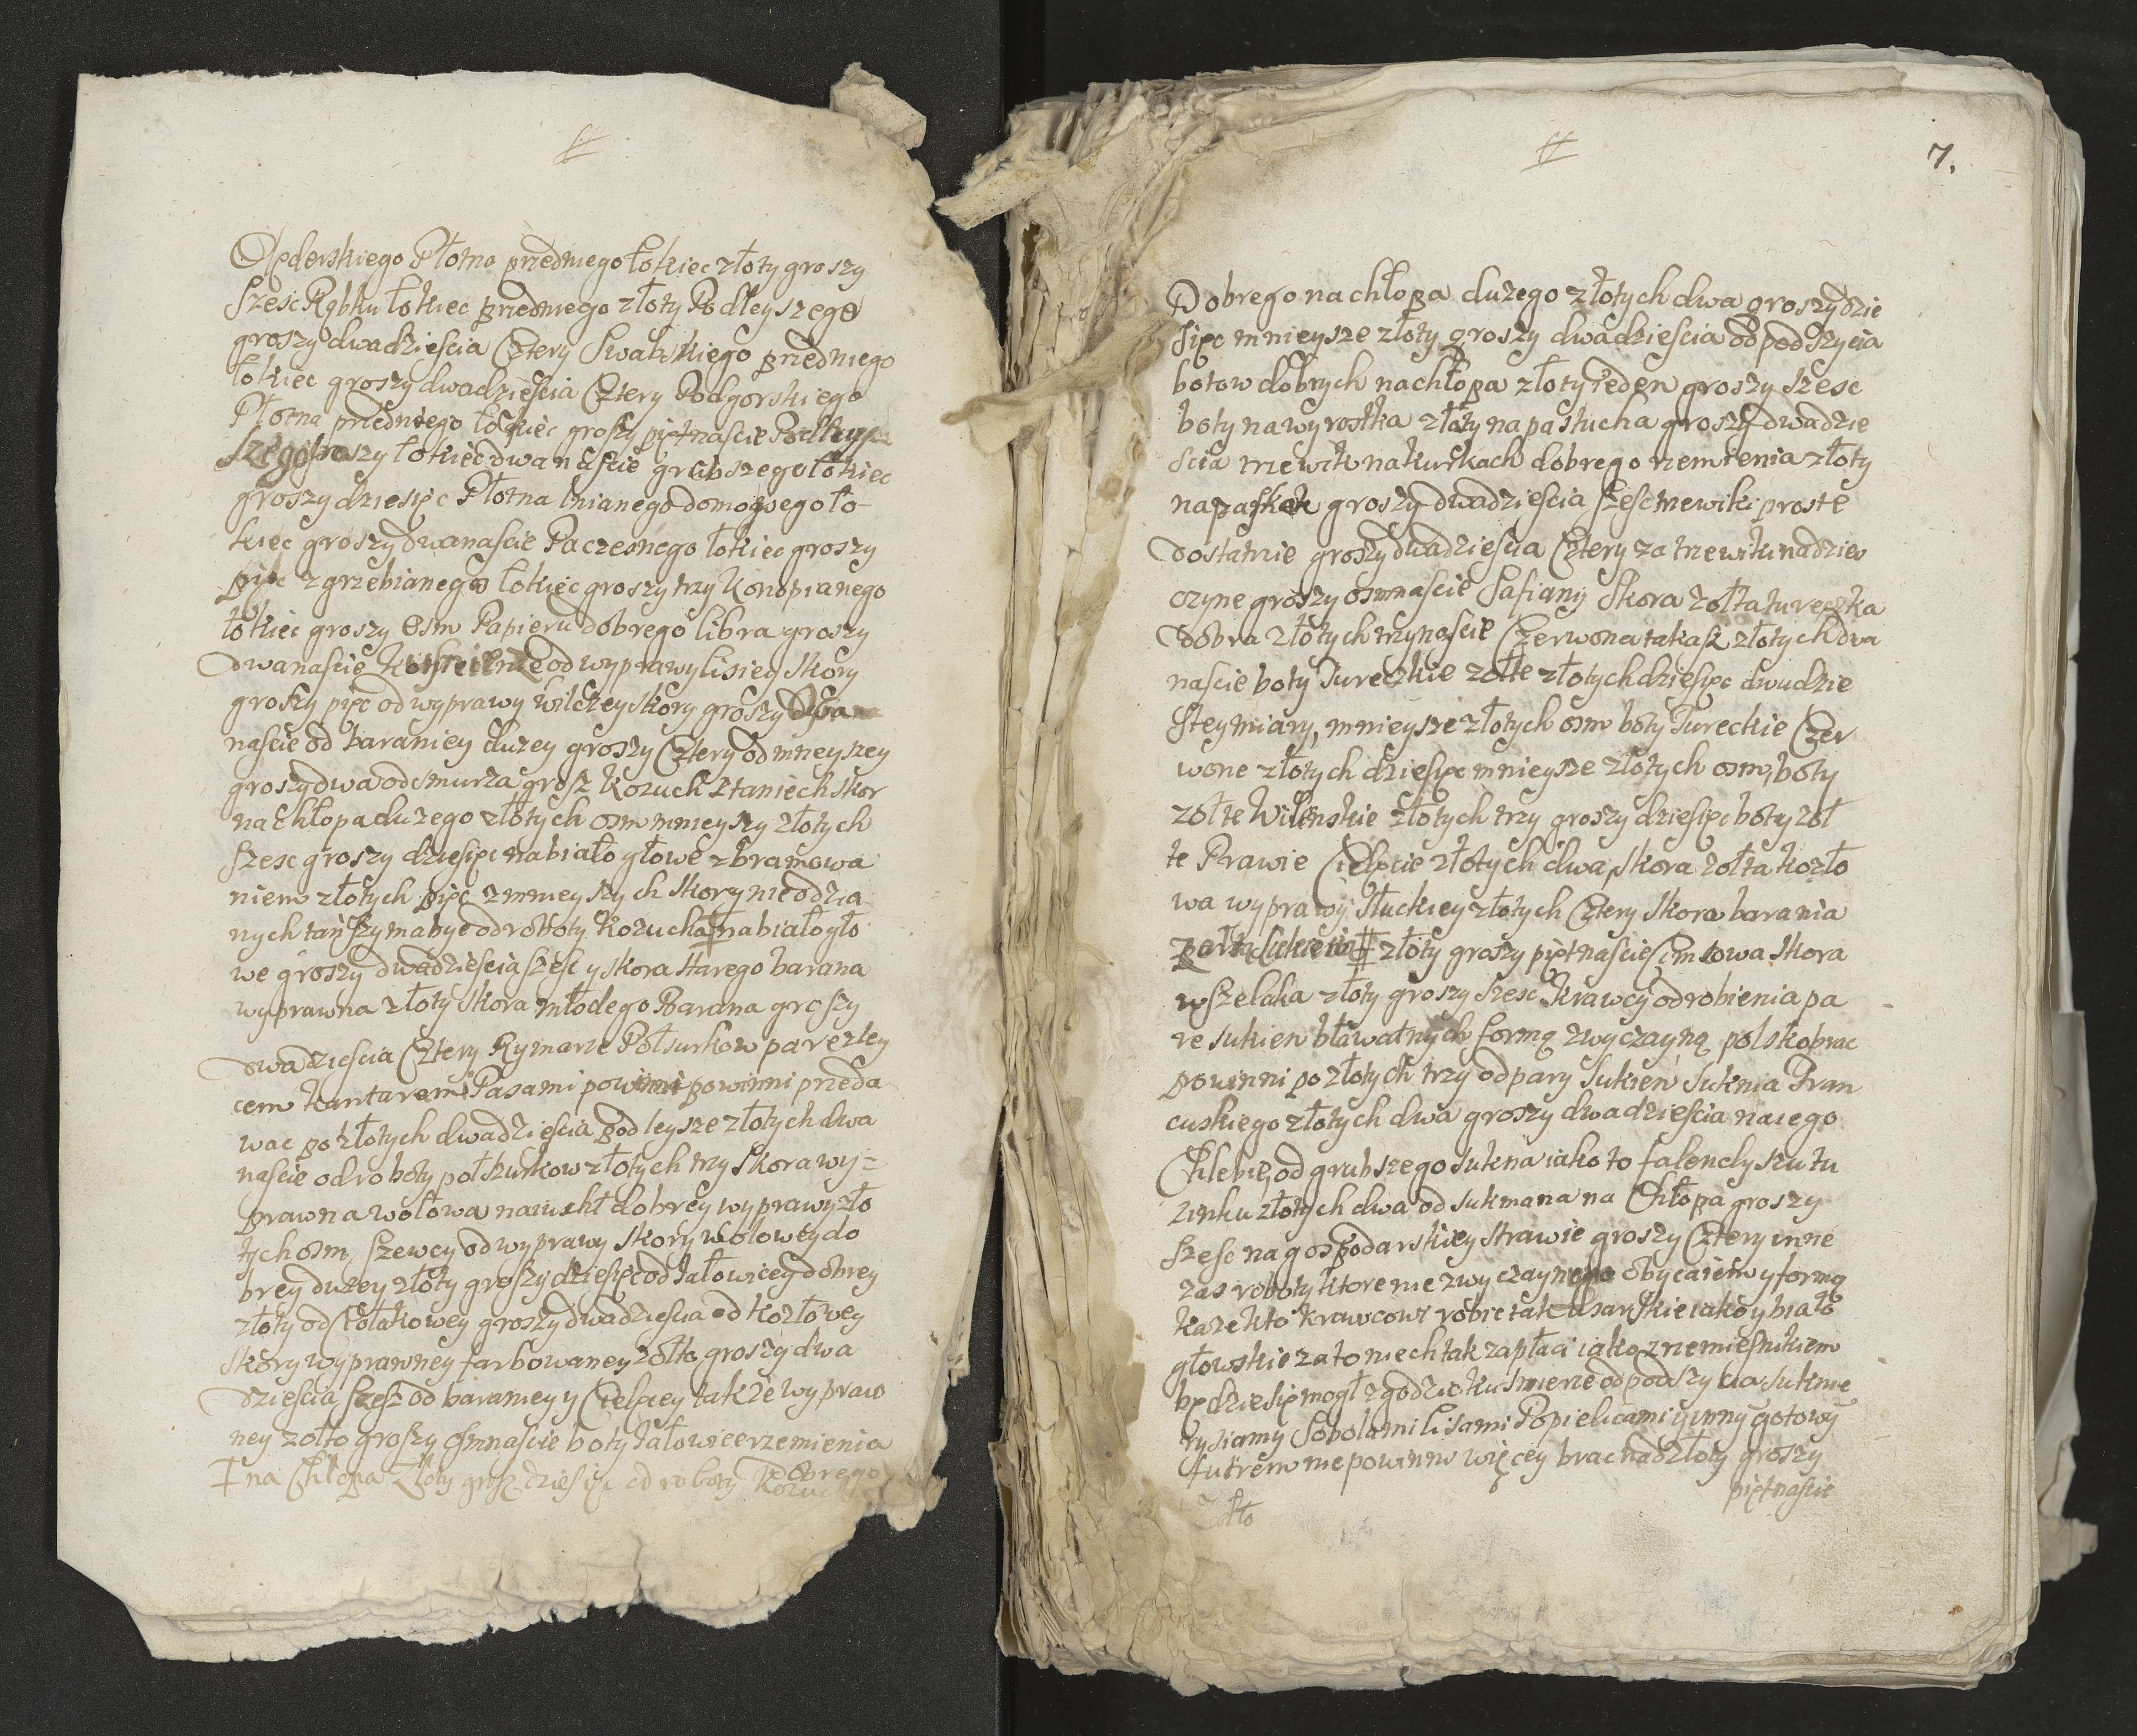 Płotna przedniego łokiec złoty groszy
szesc Rąbku łokiec przedniego złoty Podleyszego
groszy dwadziescia Cztery Swabskiego przedniego
łokiec groszy dwadziescia Cztery Podgorskiego
Płotna przedniego łokiec groszy piętnascie Podleysz
szego groszy łokiec dwanascie grubszego łokiec
groszy dziesięc Płotna lnianego domowego ło-
kiec groszy dwanascie Paczesnego łokiec groszy
pięc zgrzebianego łokiec groszy trzy Konopianego
łokiec groszy osm Papieru dobrego libra groszy
dwanascie Kusnierze od wyprawy lisiey skory
groszy pięc od wyprawy wilczey skory groszy dwa
nascie od baraniey duzey groszy Cztery od mneyszey
groszy dwa od smurza grosz Kozuch z taniech skor
na chłopa duzego złotych osm mnieyszy złotych
szesc groszy dziesięc na biało głowe z bramowa
niem złotych pięc z mnieyszych skory nieodzia
nych tanszy ma byc od roboty Kozucha na biało gło
we groszy dwadziescia szesc y skora starego barana
wyprawna złoty skora młodego Barana groszy
dwadziescia Cztery Rymarze Połsurkow pare zley
cem kantarem Pasami powinni powinni przeda
wac po złotych dwadziescia podleysze złotych dwa
nascie od roboty połszurkow złotych trzy skora wy=
prawna wołowa na iucht dobrey wyprawy zło
tych osm, szewcy od wyprawy skory wołowey do
brey duzey złoty groszy dziesięc od Jałowicey dobrey
złoty od Ciołakowey groszy dwadziescia od kozłowey
skory wyprawney farbowaney zołto groszy dwa
dziescia szesc od baraniey y Cielęcey takze wypraw
ney zołto groszy osmnascie boty Jałowice rzemienia
na Chłopa Złoty grosz dziesięc od roboty Dobrego
Kozuc
7.
Dobrego na chłopa duzego złotych dwa groszy dzie
sięc mnieysze złoty groszy dwadziescia od podszycia
botow dobrych na chłopa złoty ieden groszy szesc
boty na wyrostka złoty na pastucha groszy dwadzie
scia trzewik na kurkach dobrego rzemienia złoty
na paskach groszy dwadziescia szesc trzewiki proste
dostatnie groszy dwadziescia Cztery za trzewiki na dziew
czyne groszy osmnascie Safiany Skora zołta turecka
dobra złotych trzynascie Czerwona takasz złotych dwa
nascie boty Tureckie zołte złotych dziesięc dwudzie
stey miary, mnieysze złotych osm boty Tureckie Czer
wone złotych dziesięc mnieysze złotych osm, boty
zołte Wilenskie złotych trzy groszy dziesięc boty zoł
te Prawie Cielęcie złotych dwa, skora zołta kozło
wa wyprawy Słuckiey złotych Cztery skora barania
złoty groszy piętnascie Cimcowa skora
wszelaka złoty groszy szesc Krawcy od robienia pa
re sukien bławatnych formą zwyczayną polsko brac
powinni po złotych trzy od pary Sukien Suknia Fran
cuskiego złotych dwa groszy dwadziescia na iego
Chlebię, od grubszego sukna iako to falendyszu tu
zinku złotych dwa od sukmana na Chłopa groszy
szesc na gospodarskiey strawie groszy Cztery inne
zas roboty ktore nie zwyczaynego obyczaiem y formą
kaze kto Krawcowi robic iak Usarskie iako y biało
głowskie za to niech tak zapłaci iako z rzemiesnikiem
będzie się mogł zgodzic kusnierze od podszycia suknie
rysiamy Sobolami lisami Popielicami y inny gotowy
futrem nie powinni więcey brac nad złoty groszy
piętnascie
Zołto